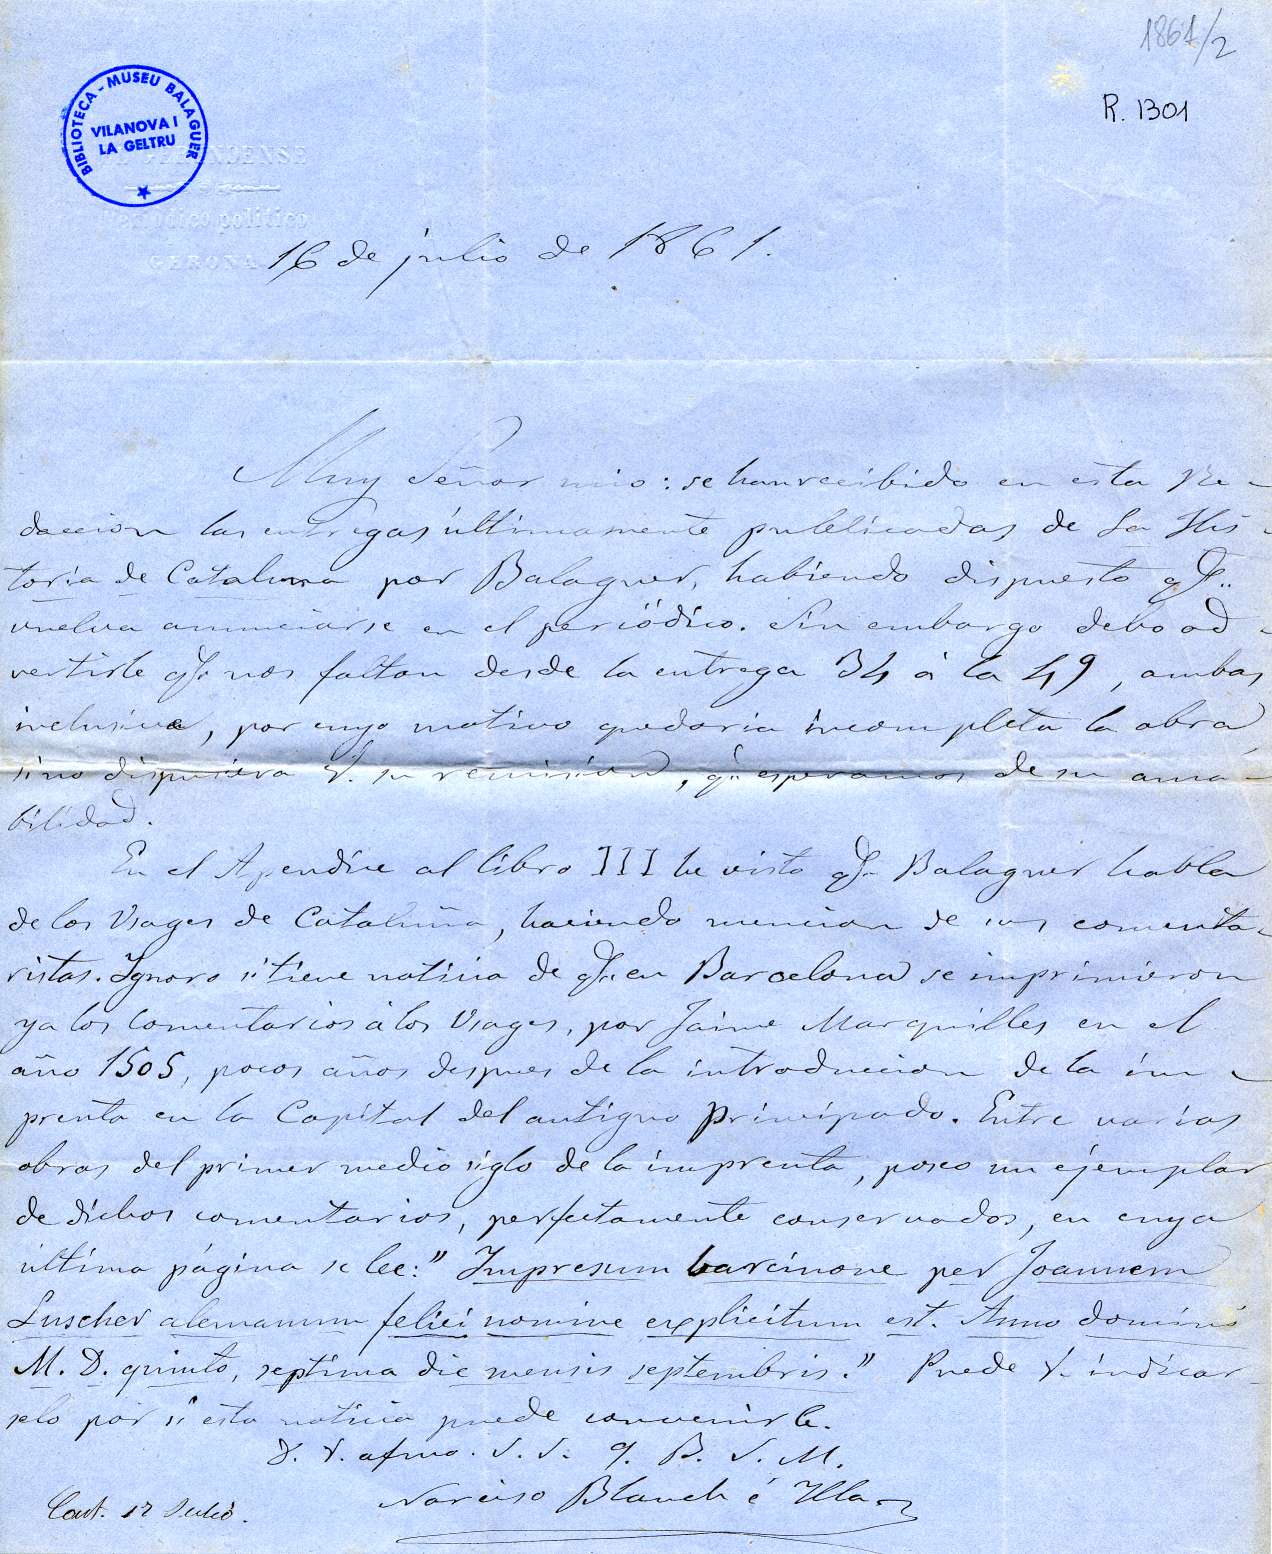 1861/2
R. 1301
BIBLIOTECA - MUSEU BALAGUER
VILANOVA I
LA GELTRU
GERUNDENSE
Periódico político
GERONA
16 de julio de 1861.
Muy Señor mio: se han recibido en esta Re-
daccion las entregas últimamente publicadas de La His-
toria de Cataluña por Balaguer, habiendo dispuesto qe.
vuelva anunciarse en el periódico. Sin embargo debo ad-
vertirle qe. nos faltan desde la entrega 34 á la 49, ambas
inclusive, por cuyo motivo quedaria incompleta la obra
sino dispusiera V. su remision, qe. esperamos de su ama-
bilidad.
En el Apendice al libro III he visto qe. Balaguer habla
de los Usages de Cataluña, haciendo mencion de sus comenta-
ristas. Ignoro si tiene noticia de qe. en Barcelona se imprimieron
ya los Comentarios á los Usages, por Jaime Marquilles en el
año 1505, pocos años despues de la introduccion de la im-
prenta en la Capital del antiguo Principado. Entre varias
obras del primer medio siglo de la imprenta, poseo un ejemplar
de dichos comentarios, perfectamente conservados, en cuya
última página se lee: "Impresum barcinone per Joannem
Luscher alemanum felici nomine explicitum est. Anno domini
M. D. quinto, septima die mensis septembris." Puede V. indicar-
selo por si esta noticia puede convenirle.
D. V. afmo. S. S. q. B. S. M.
Narciso Blanch é Illa
Cont. 17 Julio.